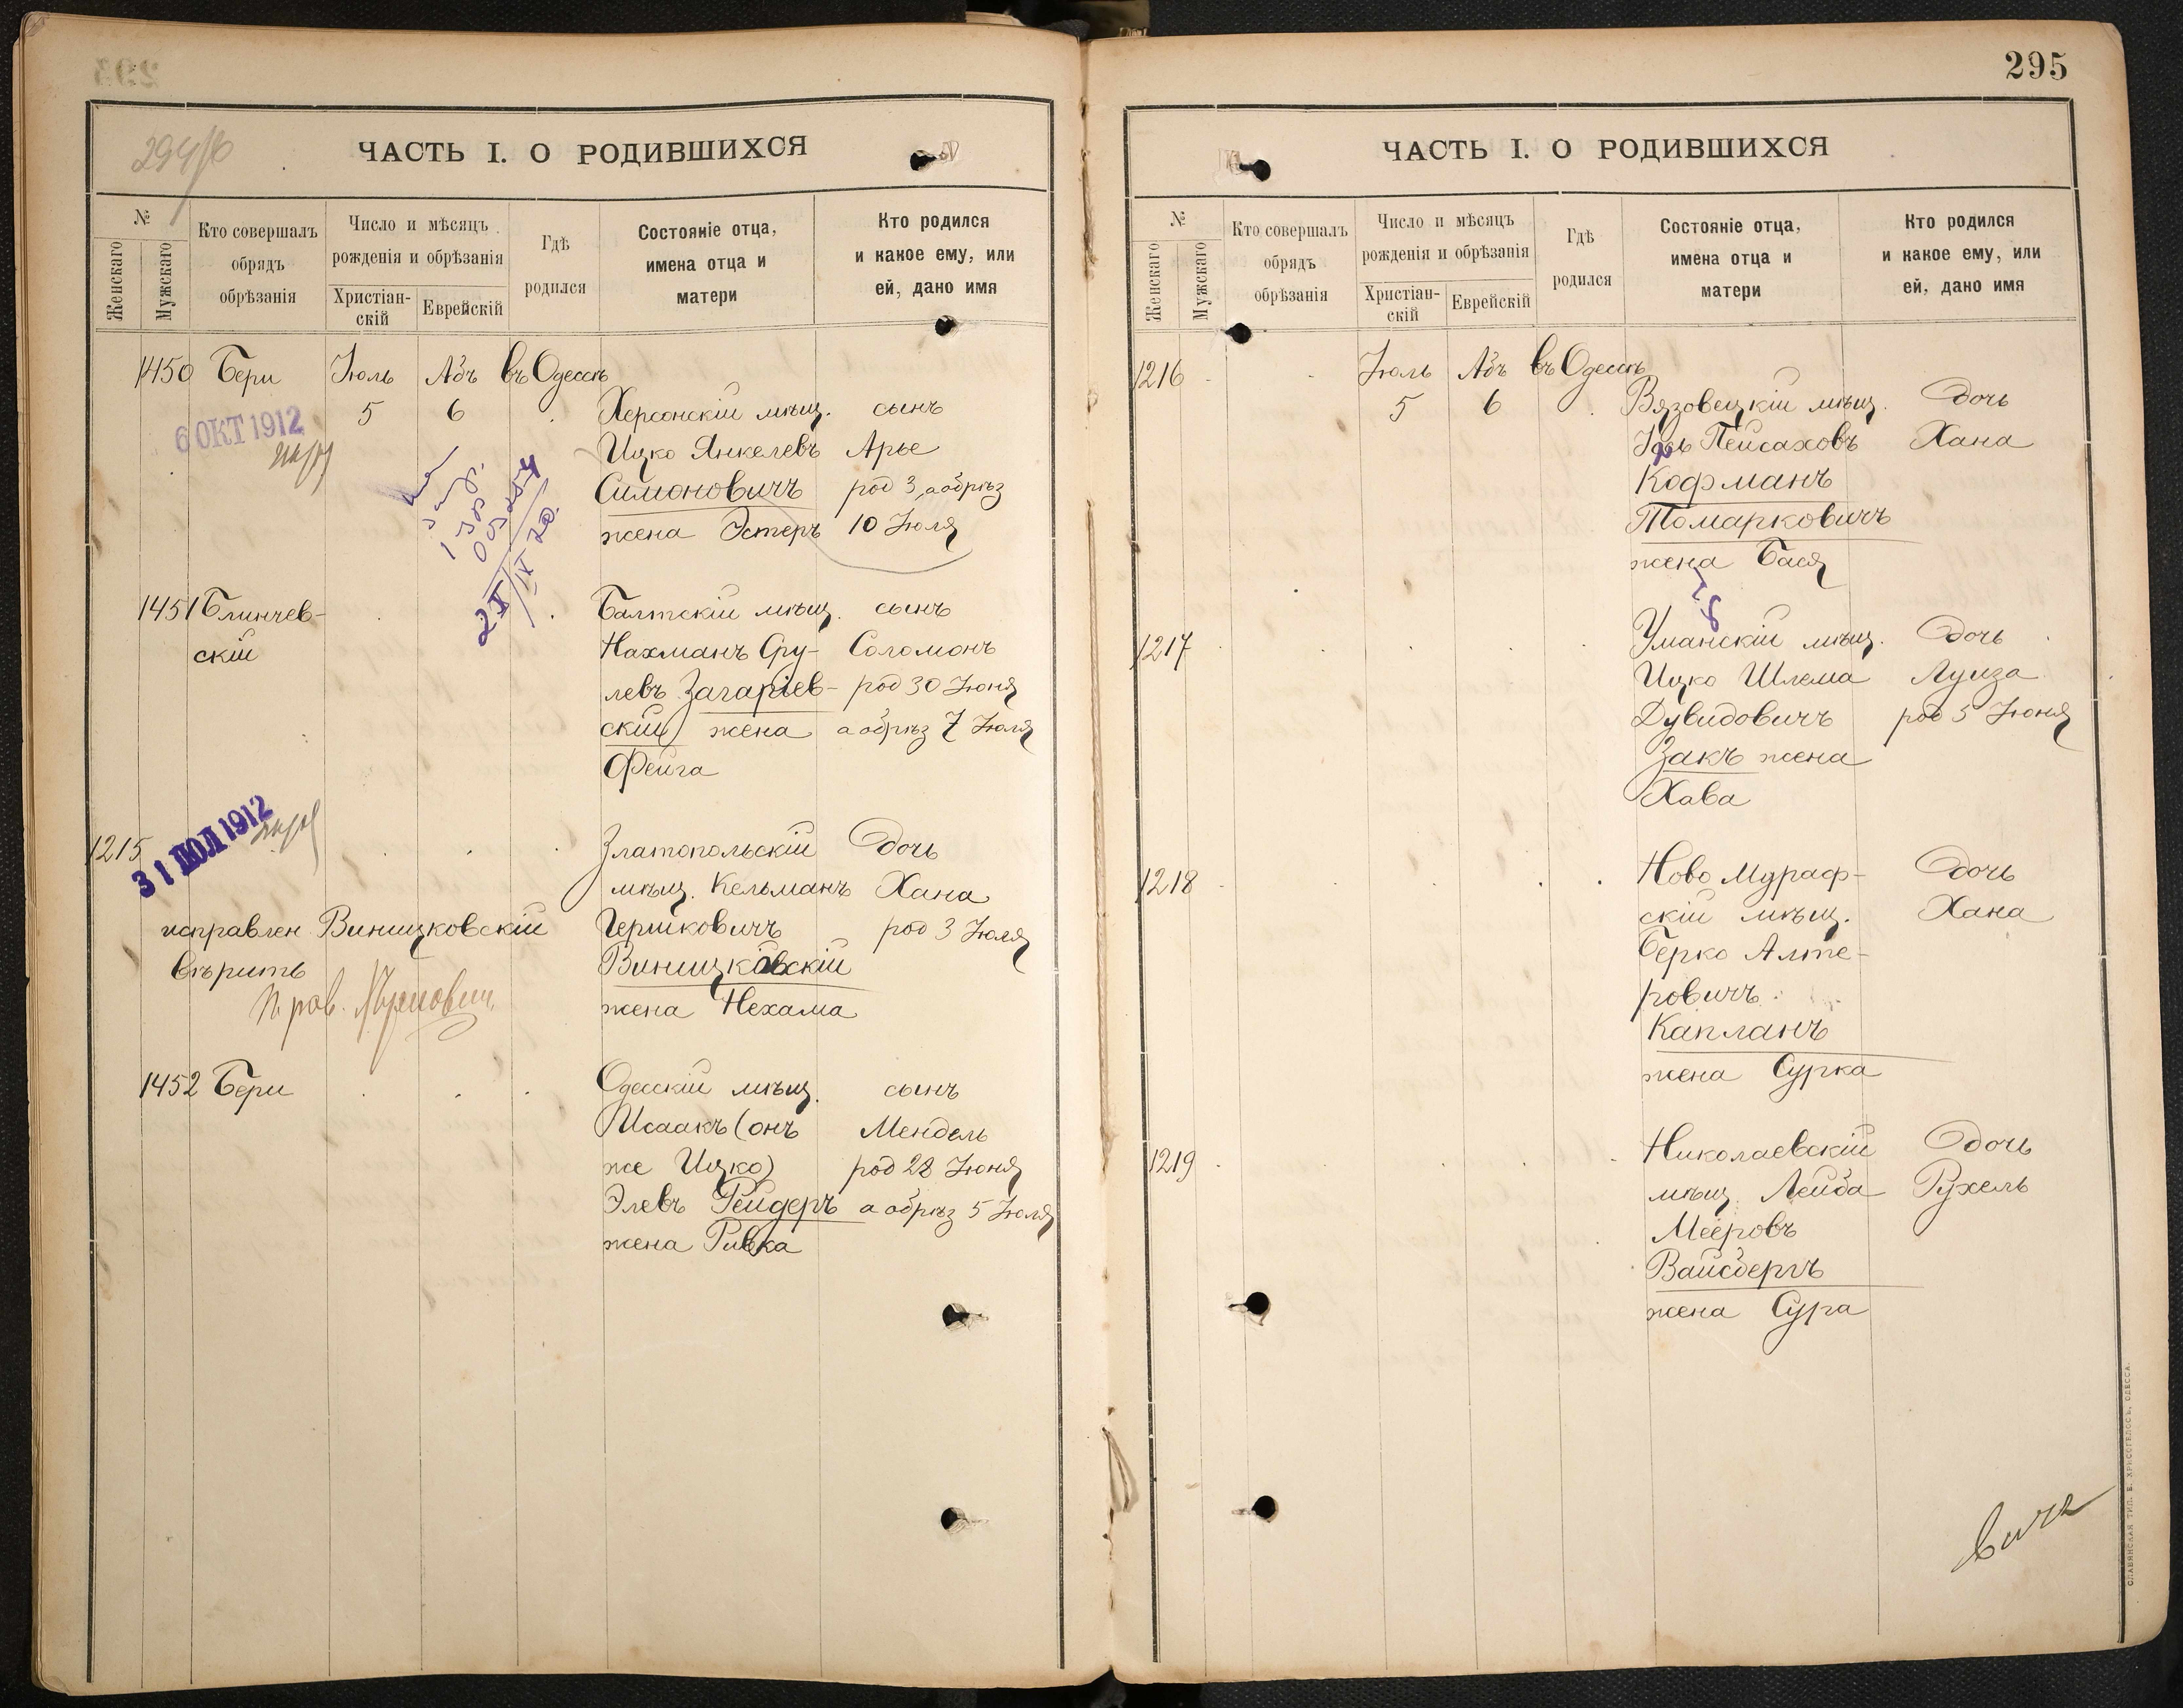 294/б
ЧАСТЬ I. О РОДИВШИХСЯ
№
Женскаго
Мужскаго
Кто совершалъ
обрядъ
обрѣзанія
Число и мѣсяцъ
рожденія и обрѣзанія
Христіан-
скій
Еврейскій
Гдѣ
родился
Состояніе отца,
имена отца и
матери
Кто родился
и какое ему, или
ей, дано имя
1450 Бери Іюль Абъ въ Одессѣ
5 6 Херсонскій мѣщ. сынъ
6 ОКТ 1912
Ицко Янкелевъ Арье
Симоновичъ род 3, а обрѣз
жена Эстеръ 10 Іюля
1451 Блинчев- Балтскій мѣщ. сынъ
скій Нахманъ Сру- Соломонъ
левъ Загаріев- род 30 Іюня
скій жена а обрѣз 7 Іюля
Фейга
31 ІЮЛ 1912
1215 Златопольскій Дочь
мѣщ. Кельманъ Хана
исправлен Виницковскій Гершковичъ род 3 Іюля
вѣрить Виницковскій
жена Нехама
1452 Бери Одесскій мѣщ. сынъ
Исаакъ (онъ Мендель
же Ицко) род 28 Іюня
Элевъ Рейдеръ а обрѣз 5 Іюля
жена Ривка
295
ЧАСТЬ I. О РОДИВШИХСЯ
№
Женскаго
Мужскаго
Кто совершалъ
обрядъ
обрѣзанія
Число и мѣсяцъ
рожденія и обрѣзанія
Христіан-
скій
Еврейскій
Гдѣ
родился
Состояніе отца,
имена отца и
матери
Кто родился
и какое ему, или
ей, дано имя
1216 Іюль Абъ въ Одессѣ
5 6 Вязовецкій мѣщ. Дочь
Пейсаховъ Хана
Кофманъ
Томарковичъ
жена Бася
1217 Уманскій мѣщ. Дочь
Ицко Шлема Луиза
Дувидовичъ род 5 Іюня
Закъ жена
Хава
1218 Ново Мураф- Дочь
скій мѣщ. Хана
Берко Алте-
ровичъ
Капланъ
жена Сурка
1219 Николаевскій Дочь
мѣщ. Лейба Рухель
Мееровъ
Вайсбергъ
жена Сура
СЛАВЯНСКАЯ ТИП. Е. ХРИСОГЕЛОСЪ, ОДЕССА.